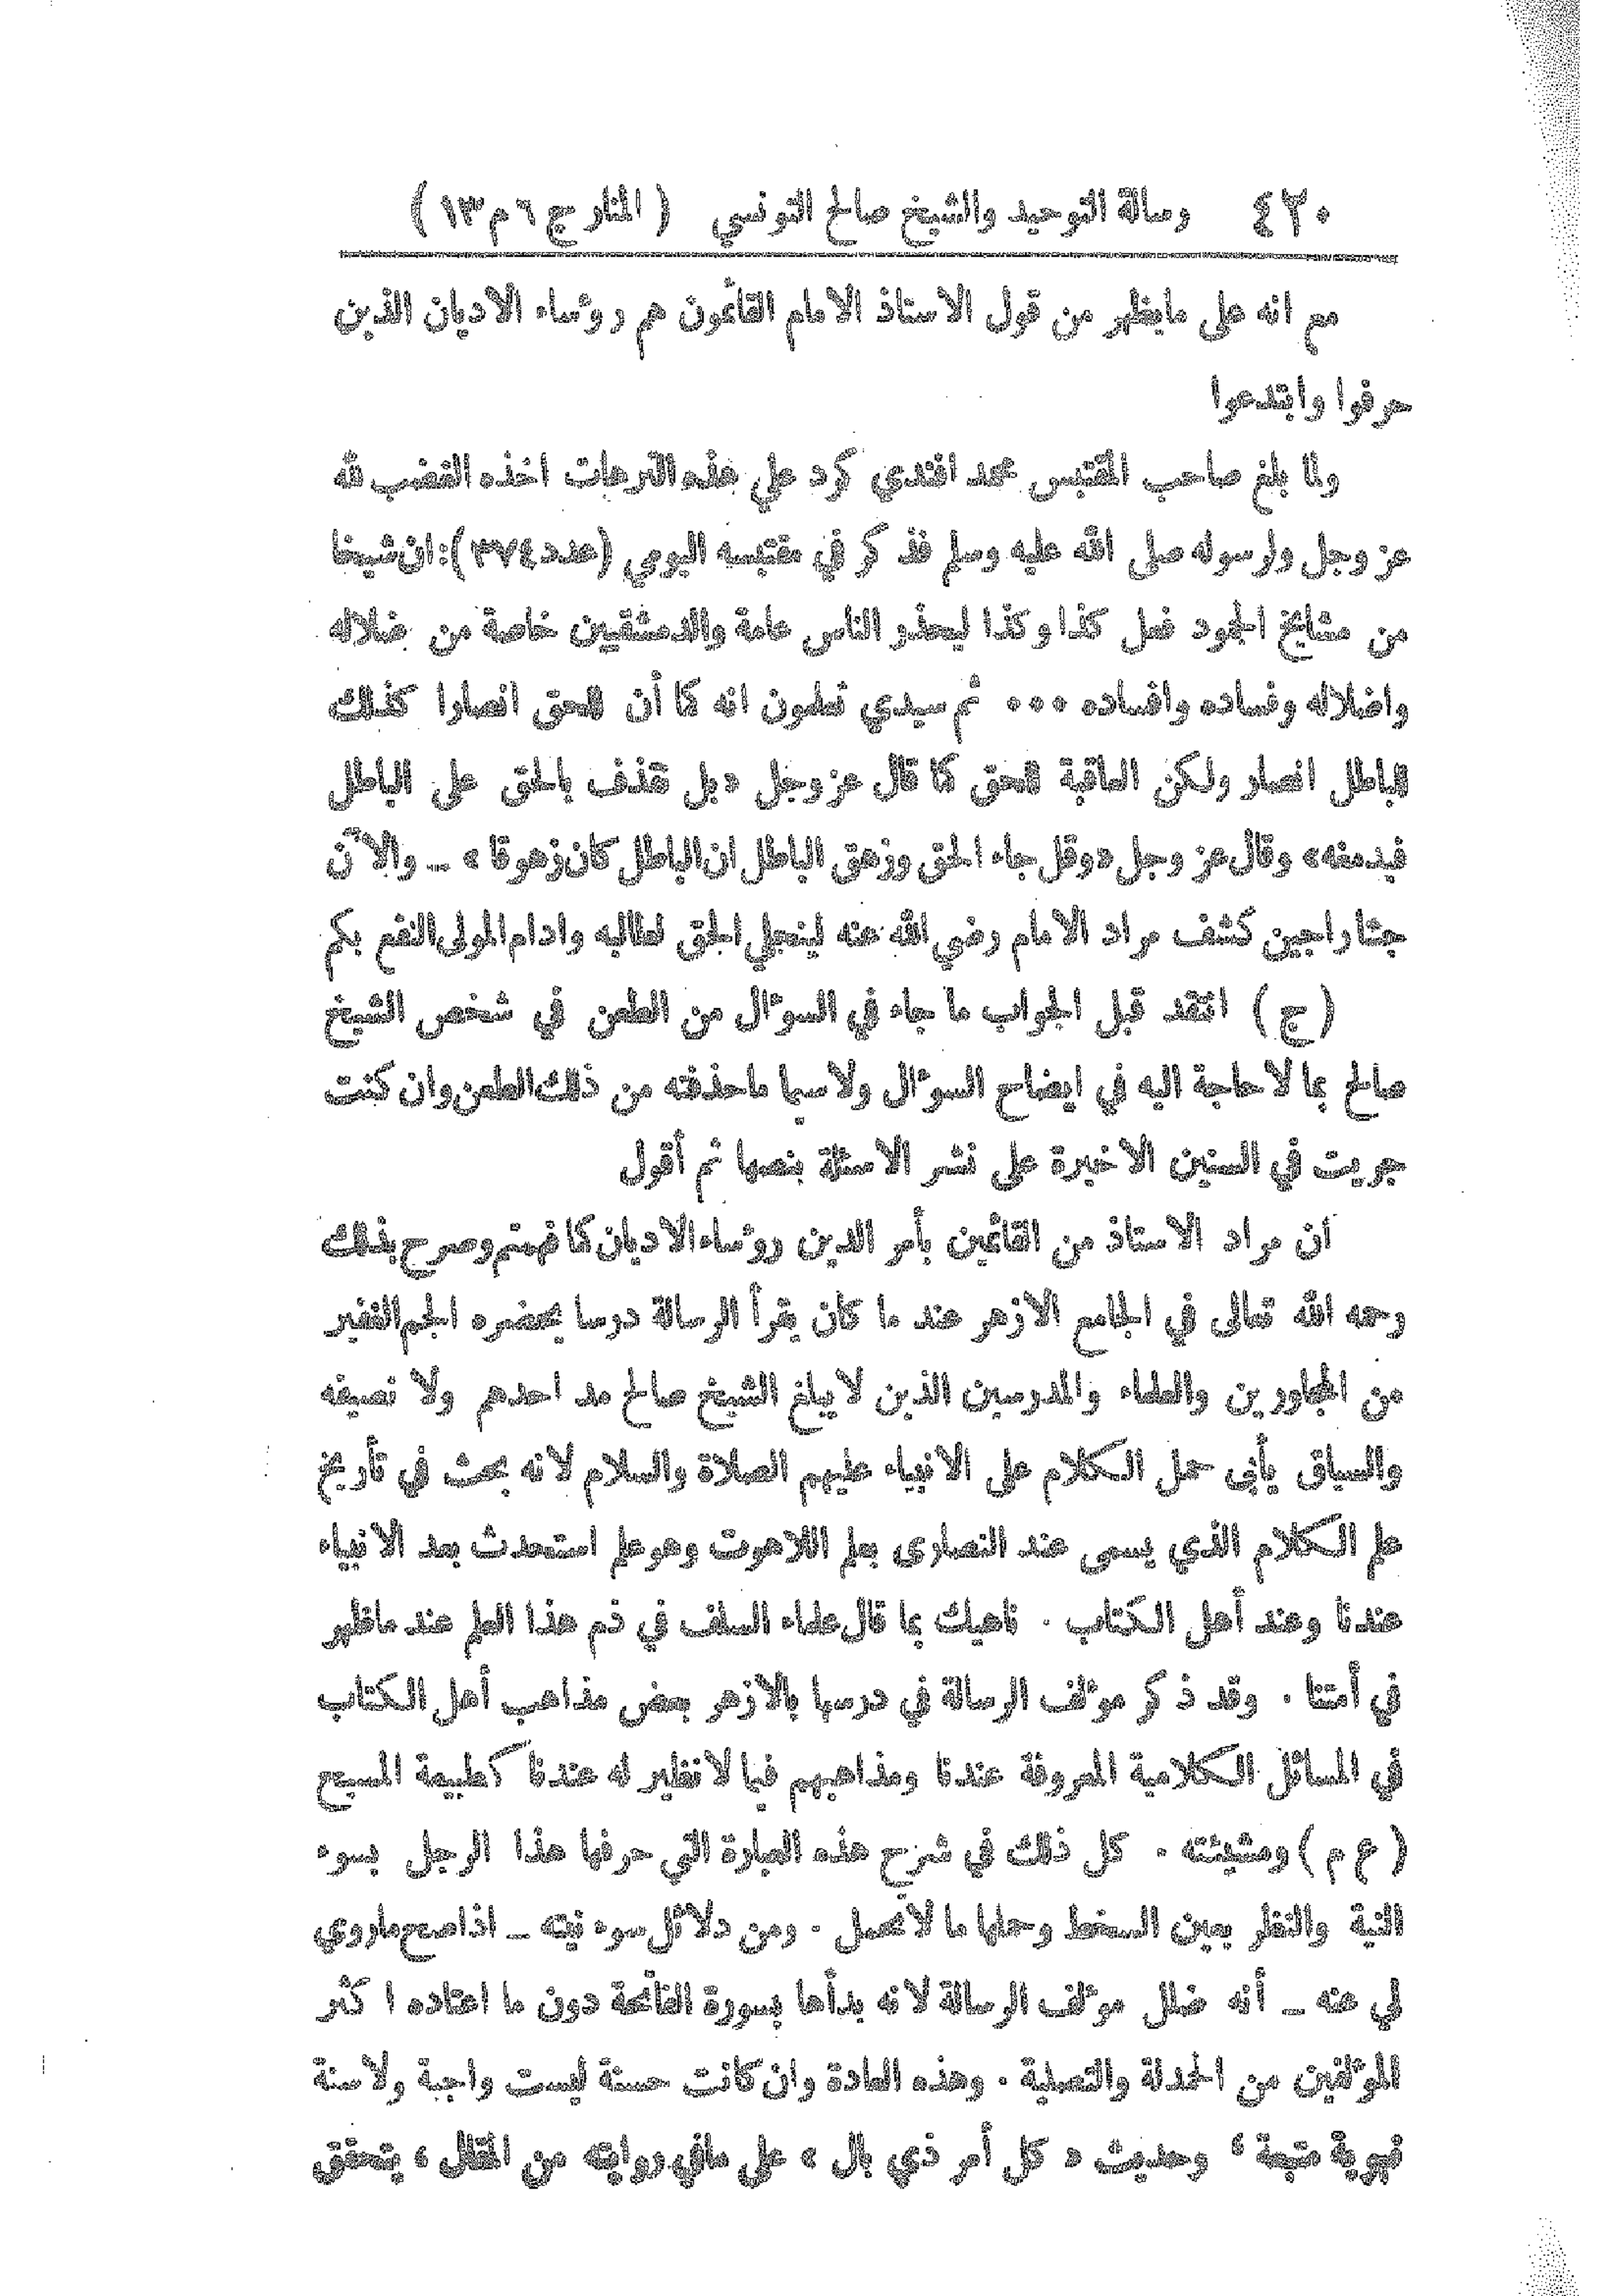 ٤٢٠ رسالة التوحيد والشيخ صالح التونسي ( المنار ج ٦ م ١٣ )
مع انه على مايظهر من قول الاستاذ الامام القائمون هم روؤساء الاديان الذين
حرفوا وابتدعوا
ولما بلغ صاحب المقتبس محمد افندي كرد علي هذه الترهات اخذه الغضب لله
عز وجل ولرسوله صلى الله عليه وسلم فذكر في مقتبسه اليومي (عدد ٣٧٤): ان شيخا
من مشايخ الجمود فعل كذا وكذا ليحذر الناس عامة والدمشقيين خاصة من ضلاله
واضلاله وفساده وافساده ٠٠٠ ثم سيدي تعلمون انه كما أن للحق انصارا كذلك
للباطل انصار ولكن العاقبة للحق كما قال عز وجل «بل نقذف بالحق على الباطل
فيدمغه» وقال عز وجل «وقل جاء الحق وزهق الباطل ان الباطل كان زهوقا» ـ والآن
جئنا راجين كشف مراد الامام رضي الله عنه لينجلي الحق لطالبه وادام المولى النفع بكم
(ج) انتقد قبل الجواب ما جاء في السوؤال من الطعن في شخص الشيخ
صالح بما لا حاجة اليه في ايضاح السوؤال ولاسيما ماحذفته من ذلك الطعن وان كنت
جريت في السنين الاخيرة على نشر الاسئلة بنصها ثم أقول
ان مراد الاستاذ من القائمين بأمر الدين روؤساء الاديان كما فهمتم وصرح بذلك
رحمه الله تعالى في الجامع الازهر عند ما كان يقرأ الرسالة درسا يحضره الجم الغفير
من المجاورين والعلماء والمدرسين الذين لا يبلغ الشيخ صالح مد احدهم ولا نصيفه
والسياق يأبى حمل الكلام على الانبياء عليهم الصلاة والسلام لانه بحث في تأريخ
علم الكلام الذي يسمى عند النصارى بعلم اللاهوت وهو علم استحدث بعد الانبياء
عندنا وعند أهل الكتاب . ناهيك بما قال علماء السلف في ذم هذا العلم عند ماظهر
في أمتنا . وقد ذكر موؤلف الرسالة في درسها بالازهر بعض مذاهب أهل الكتاب
في المسائل الكلامية المعروفة عندنا ومذاهبهم فيما لا نظير له عندنا كطبيعة المسيح
(ع م) ومشيئته . كل ذلك في شرح هذه العبارة التي حرفها هذا الرجل بسوء
النية والنظر بعين السخط وحملها ما لا تحمل . ومن دلائل سوء نيته ـ اذا صح ماروي
لي عنه ـ أنه ضلل موؤلف الرسالة لانه بدأها بسورة الفاتحة دون ما اعتاده اكثر
الموؤلفين من الحمدلة والتصلية . وهذه العادة وان كانت حسنة ليست واجبة ولا سنة
نبوية متبعة ؛ وحديث « كل أمر ذي بال » على مافي روايته من المقال ، يتحقق